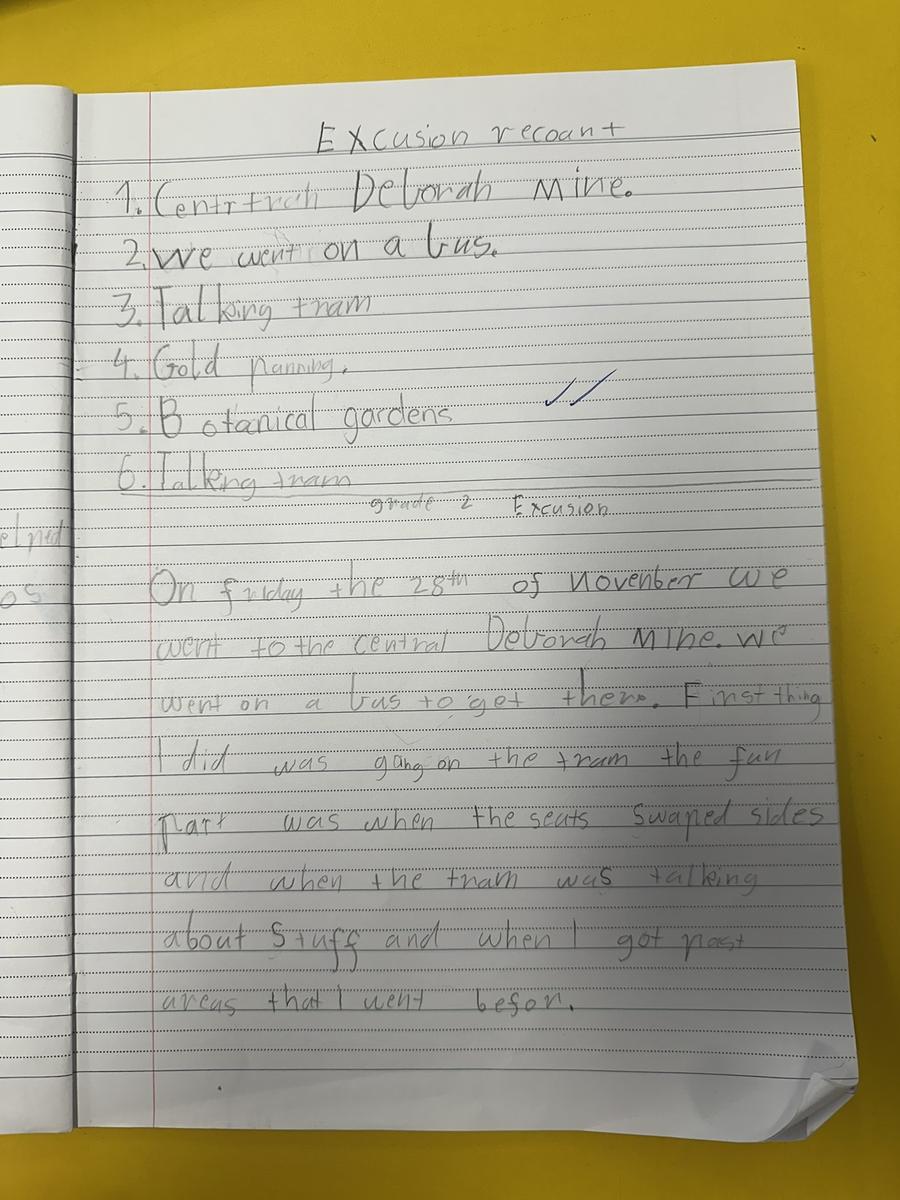 Excusion recount
1. Centrtrah Deborah Mine.
2. We went on a bus.
3. Talking tram
4. Gold panning.
5. Botanical gardens
6. Talking tram
grade 2 Excusion
elped
os
On friday the 28th of Novenber we
went to the central Deborah Mine. we
went on a bus to get there. First thing
I did was gang on the tram the fun
part was when the seats swaped sides
and when the tram was talking
about stuff and when I got past
areas that I went befor.